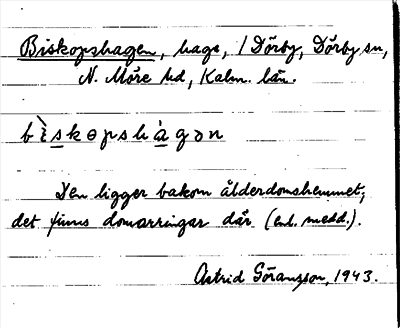 Biskopshagen, hage, / Dörby, Dörby sn,
N. Möre hd, Kalm. län.
bìskopshàgən
Den ligger bakom ålderdomshemmet,
det finns domarringar där (enl. medd.).
Astrid Göransson, 1943.